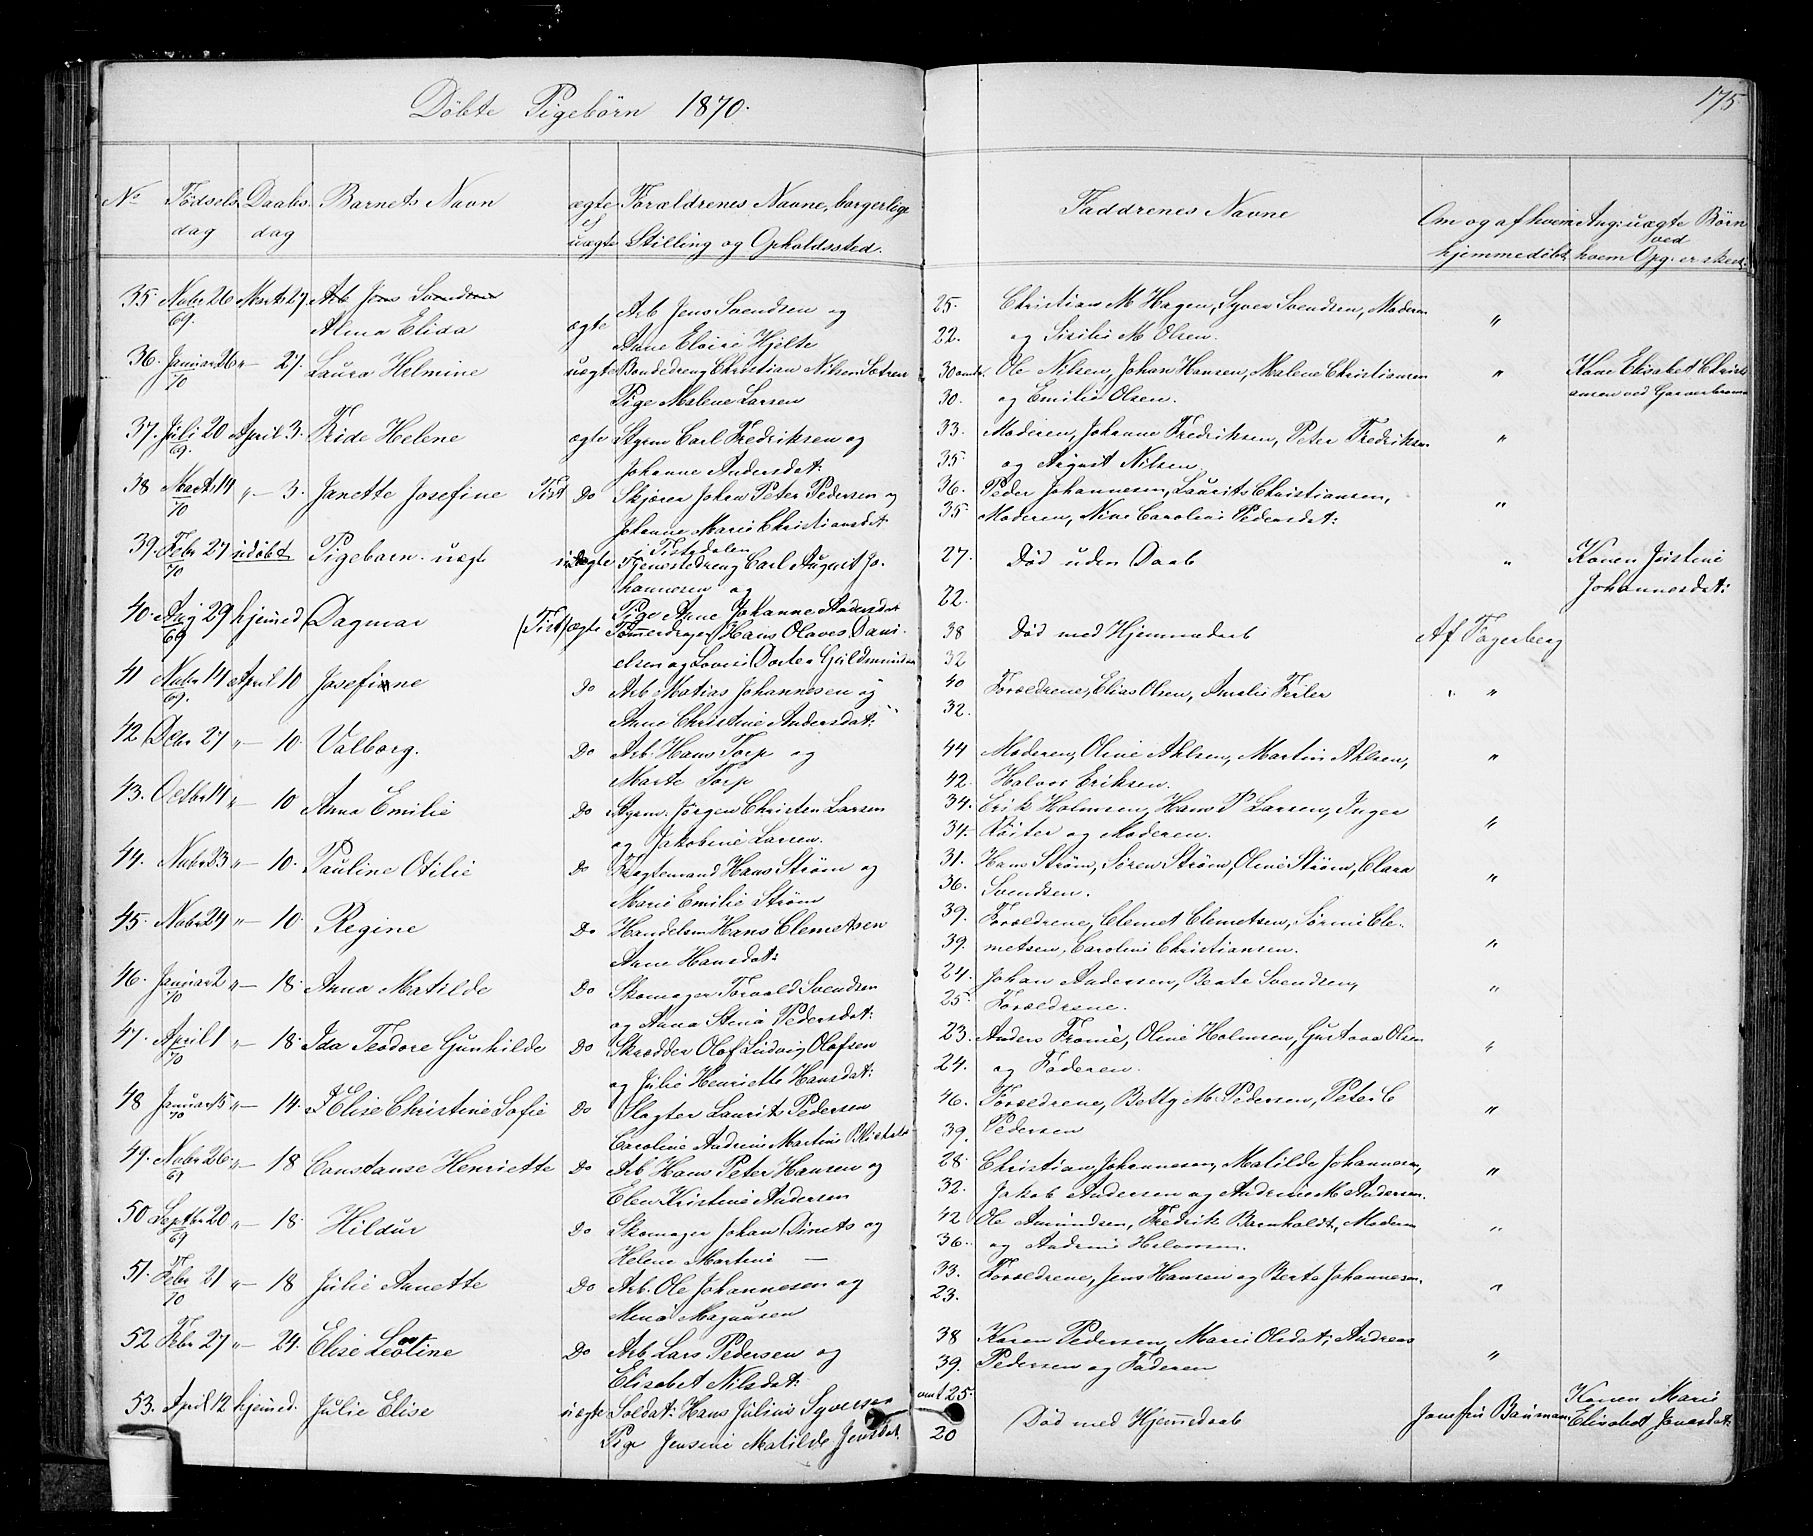 Døbte Pigebørn 1870.
175
No Fødsels dag Daabs dag Barnets Navn ægte el uægte Forældrenes Navne, borgerlige Stilling og Opholdssted. Faddrenes Navne Om og af hvem hjemmedøbt Ang: uægte Børn ved hvem Opg: er skeet.
35. Novbr 26 Marts 27 Arb Jens Svendsen Arb Jens Svendsen og 25. Christian M Hagen, Syver Svendsen, Moderen "
69. Alma Elida ægte Anne Eloise Hjelte 22. og Sisilie M Olsen.
36. Januar 26 "- 27. Laura Helmine uægte Bondedreng Christian Nilsen Sætren 30 omtr. Ole Nilsen, Johan Hansen, Malene Christiansen " Kone Elisabet Christi
70 Pige Malene Larsen 30. og Emilie Olsen. ansen ved Garverbroen
37. Juli 20 April 3. Fride Helene ægte Styrm Carl Fredriksen og 33. Moderen, Johanne Fredriksen, Peter Fredriksen "
69. Johanne Andersdat: 35. og August Nilsen
38 Marts 14 "- 3. Janette Josefine Tist Do Skjærer Johan Peter Pedersen og 36. Peder Johannesen, Laurits Christiansen, "
70 Johanne Marie Christiansdat 35 Moderen, Nine Caroline Pedersdat:
i Tistedalen
39. Febr 27 udøbt Pigebarn uægt uægte Tjenestedreng Carl August Jo- 27. Død uden Daab " Konen Justine
70 hannesen og 22. Johannesdat:
Pige Anne Johanne Andersdat
40. Aug 29 hjemmed Dagmar (Tist) ægte Tømmerdrager Hans Olaves Dani- 38 Død med Hjemmedaab Af Fagerberg
69 elsen og Lovise Dortea Guldmundsen 32
41 Novbr 14 April 10 Josefine Do Arb Matias Johannesen og 40 Forældrene, Elias Olsen, Amalie Feiler "
69. Anne Christine Andersdat: 32.
42 Debr 27 "- 10. Valborg. Do Arb. Hans Torp og 44 Moderen, Oline Ahlsen, Martin Ahlsen, "
Marte Torp 42. Halvor Eriksen.
43. Octbr 14 "- 10 Anna Emilie Do Styrm. Jørgen Christen Larsen 34. Erik Holmsen, Hans P Larsen, Inger "
og Jakobine Larsen. 34. Røiter og Moderen.
44. Novbr 23 "- 10. Pauline Otilie Do Fragtemand Hans Strøm og 31. Hans Strøm, Søren Strøm, Oline Strøm, Clara "
Marie Emilie Strøm 36. Svendsen.
45. Novbr 24 "- 10 Regine Do Handelsm Hans Clemetsen 39. Forældrene, Clemet Clemetsen, Sørine Cle- "
Anne Hansdat: 39. metsen, Caroline Christiansen.
46. Januar 2 "- 18. Anna Matilde Do Skomager Torvald Svendsen 24. Johan Andersen, Beate Svendsen, "
70 og Anna Stina Pedersdat: 25. Forældrene.
47. April 1 "- 18. Ida Teodore Gunhilde Do Skrædder Olof Ludvig Olofsen 23. Anders Fronie, Oline Holmsen, Gustava Olsen "
70 og Julie Henriette Hansdat: 24. og Faderen.
48 Januar 5 "- 14. Elise Christine Sofie Do Slagter Laurits Pedersen 46. Forældrene, Betty M. Pedersen, Peter C "
70 Caroline Andrine Martine 39. Pedersen
49. Novbr 26 "- 18 Constanse Henriette Do Arb Hans Peter Hansen og 28. Christian Johannesen, Matilde Johannesen, "
69 Elen Kristine Andersen 32. Jakob Andersen og Andrine M Andersen.
50 Septbr 20 "- 18. Hildur Do Skomager Johan Dinets og 42 Ole Amundsen, Fredrik Barnholdt, Moderen "
69 Helene Martine — 36. og Andrine Halvorsen.
51. Febr 21 "- 18 Julie Annette Do Arb. Ole Johannesen og 33. Forældrene, Jens Hansen og Berte Johannesen. "
70 Mina Magnusen 23.
52 Febr 27 "- 24. Elise Leotine Do Arb Lars Pedersen og 38 Karen Pedersen, Marie Olsdat: Andreas "
Elisabet Nilsdat: 39. Pedersen og Faderen
53. April 12 hjemmed. Julie Elise uægte Soldat: Hans Julius Syversen omt 25. Død med Hjemmedaab Josefin Bauman Konen Marie
Pige Jensine Matilde Jensdat. 20 Elisabet Jonasdat: